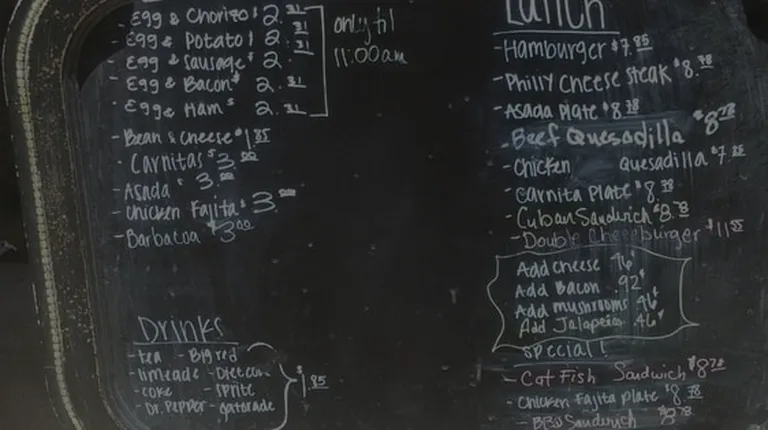 -Egg & Chorizo $2.31
-Egg & Potato $2.31
-Egg & Sausage $2.31
-Egg & Bacon $2.31
-Egg & Ham $2.31
only til
11:00am
-Bean & Cheese $1.85
-Carnitas $3.00
-Asada $3.00
-Chicken Fajita $3.00
-Barbacoa $3.00
Drinks
-tea -Big red
-limeade -Diet coke
-coke -sprite
-Dr. Pepper -gatorade
$1.85
Lunch
-Hamburger $7.85
-Philly Cheese Steak $8.78
-Asada Plate $8.78
-Beef Quesadilla $8.78
-Chicken Quesadilla $7.85
-Carnita Plate $8.78
-Cuban Sandwich $8.78
-Double Cheeseburger $11.55
Add Cheese
Add Bacon .92¢
Add mushrooms .46¢
Add Jalapeños .46¢
Special!
-Cat Fish Sandwich $8.78
-Chicken Fajita Plate $8.78
-BBQ Sandwich $8.78